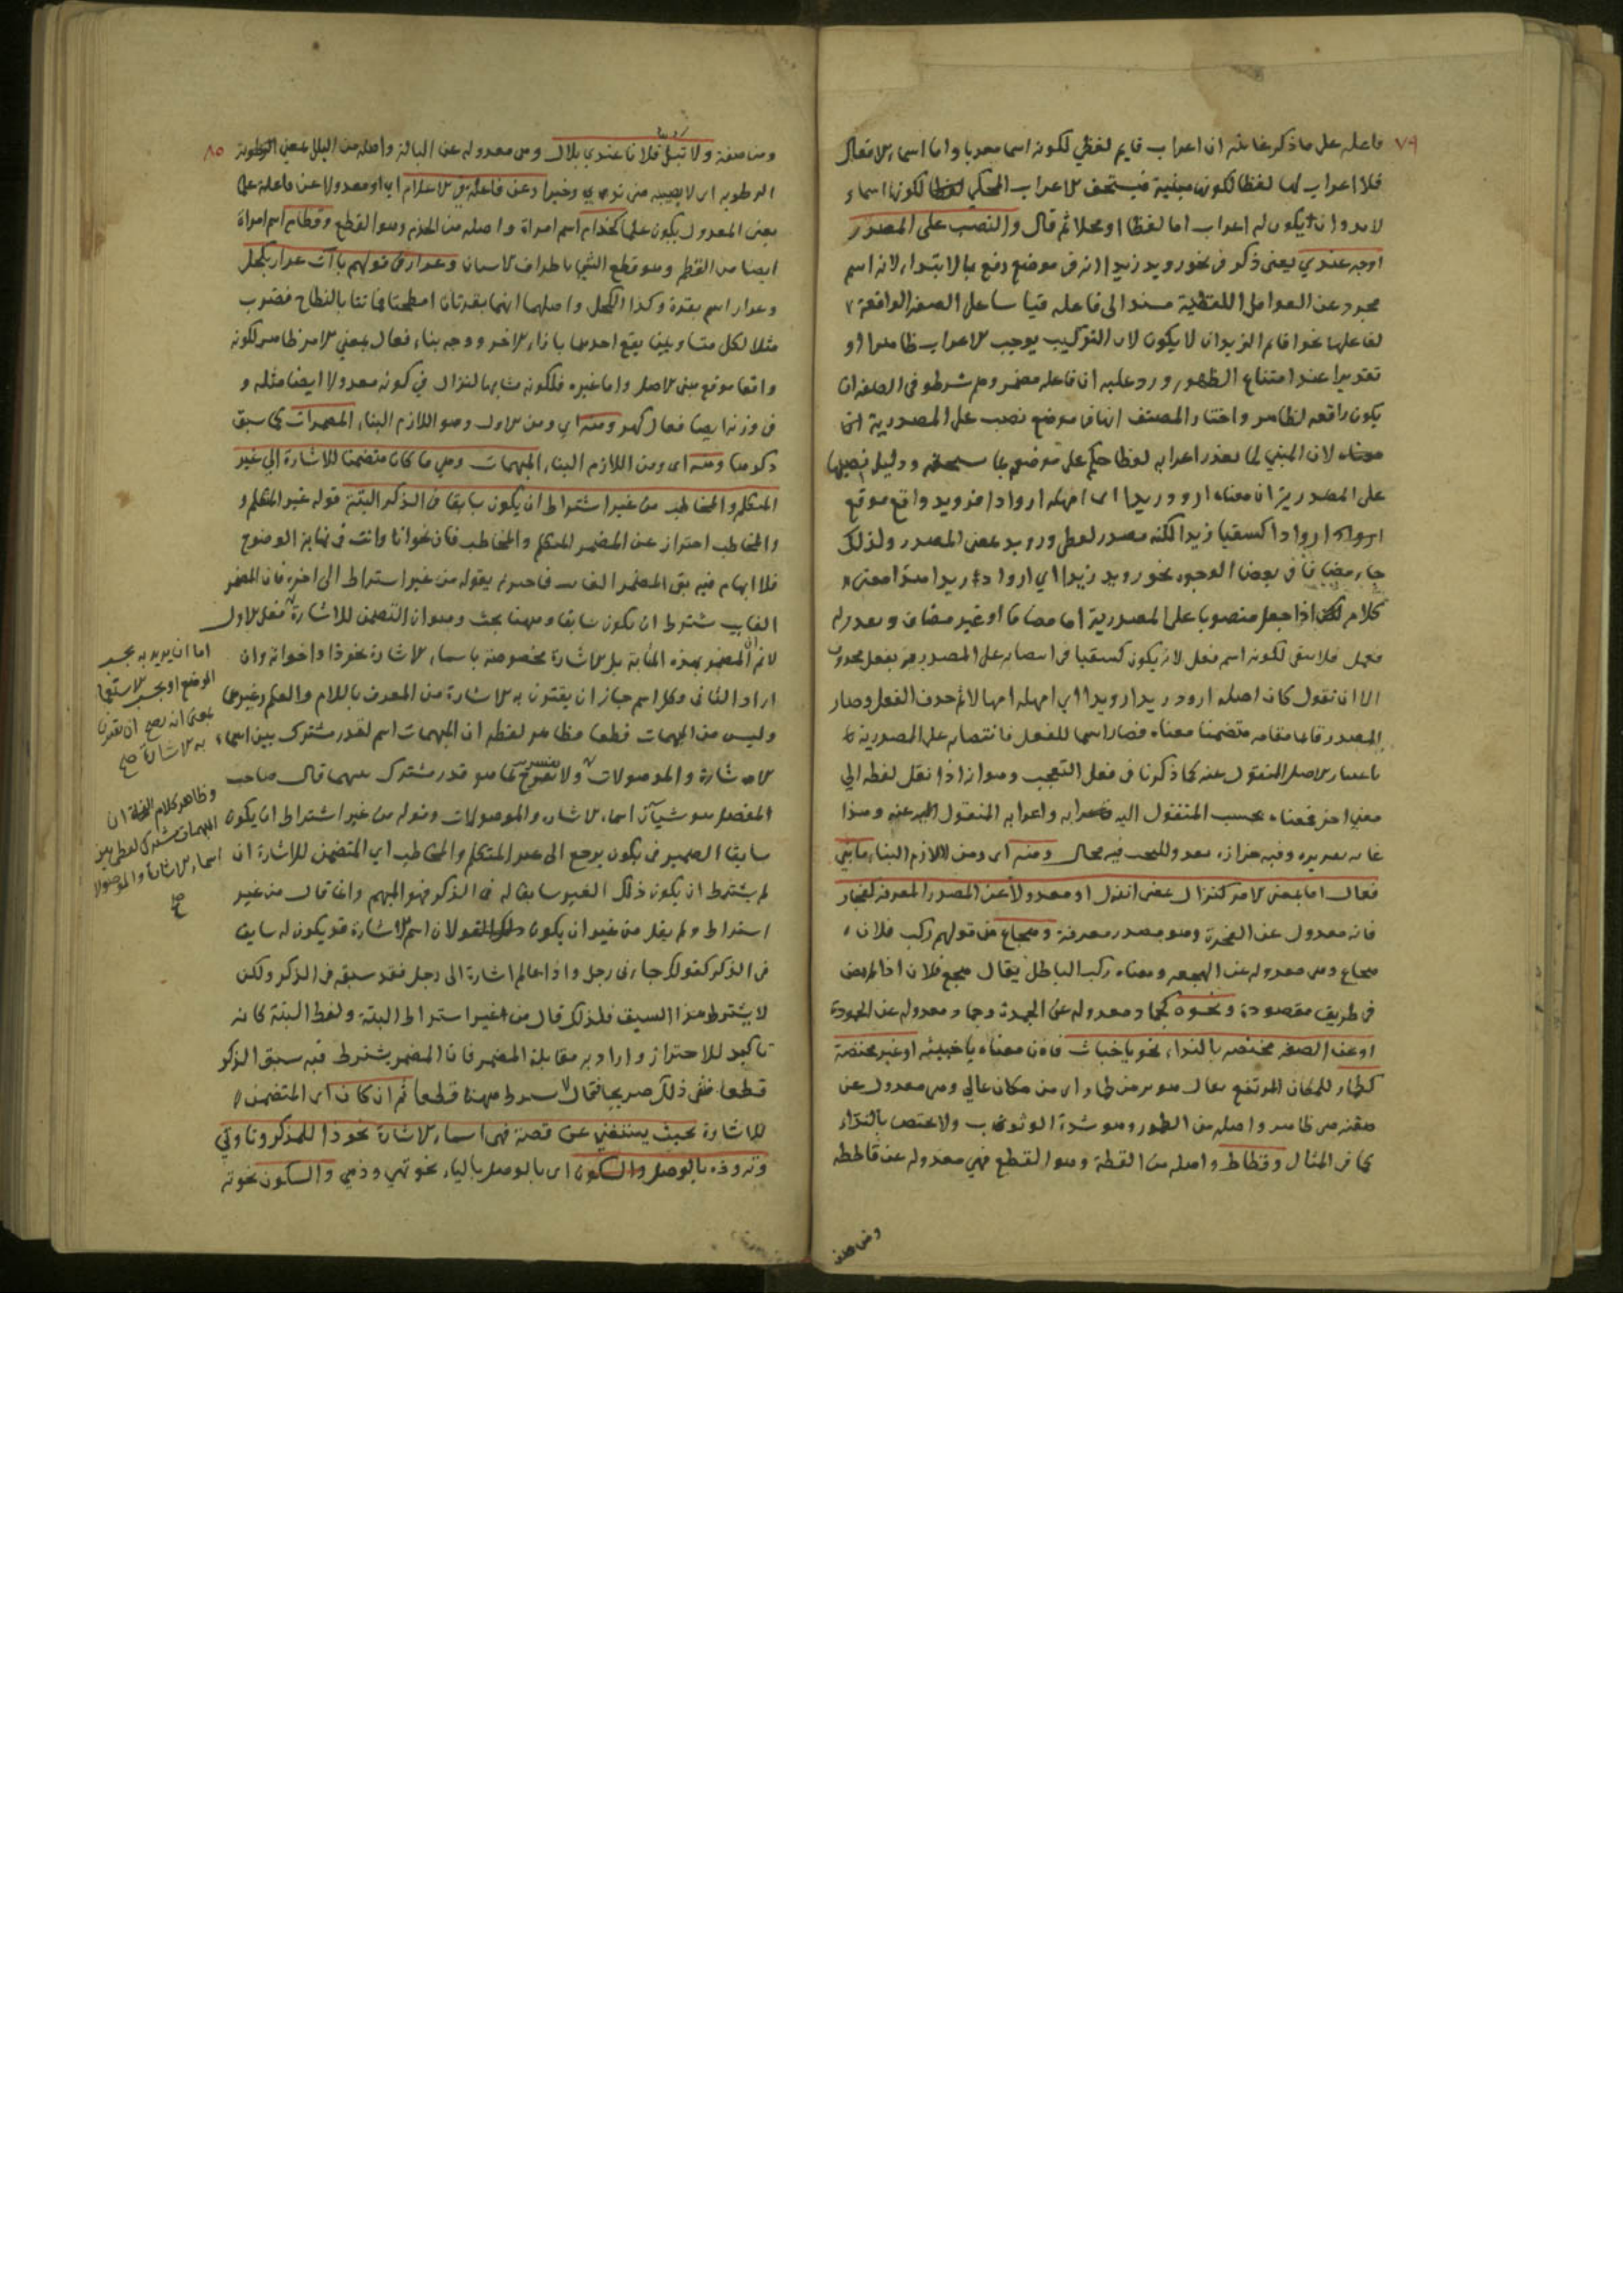 ٧٩
فاعله على ما ذكر غايته ان اعراب قايم لفظي لكونه اسما معربا واما اسماء الافعال
فلا اعراب لها لفظا لكونها مبنية فيستحق الاعراب المحكي لفظا لكونها اسماء
لابد وان يكون له اعراب اما لفظا او محلا ثم قال والنصب على المصدر
اوجه عندي يعني ذكر في نحو رويد زيدا انه في موضع رفع بالابتداء لانه اسم
مجرد عن العوامل اللفظية مسند الى فاعله قياسا على الصفة الواقعة
لفاعلها نحو اقائم الزيدان لا يكون لان التركيب يوجب الاعراب ظاهرا او
تقديرا عند امتناع الظهور ورد عليه ان فاعله مضمر وهم شرطوا في الصفة ان
يكون رافعه لظاهر واختار المصنف انها في موضع نصب على المصدرية
لان المبني لما تعذر اعرابه لفظا حكم على موضعه بما يستحقه ودليل نصبها
على المصدرية ان معناه ارود زيدا اى امهله اروادا فرويد واقع موقع
اروادا كسقيا زيدا لكنه مصدر لفظي ورويد بمعنى المصدر ولذلك
جاء مضافا في بعض الوجوه نحو رويد زيد اي اروادا زيد
كلام لكن اذا جعل منصوبا على المصدرية اما مضافا او غير مضاف
فلا يبقى لكونه اسم فعل لانه يكون كسقيا في انتصابه على المصدرية بفعل محذوف
الا ان نقول كان اصله ارود زيدا رويدا اي امهله امهالا ثم حذف الفعل وصار
المصدر قائما مقامه متضمنا معناه فصار اسما للفعل فانتصابه على المصدرية
باعتبار الاصل المنقول عنه كما ذكرنا في فعل التعجب وهو انه اذا نقل لفظه الى
معنى اخر فمعناه بحسب المنقول اليه واعرابه المنقول عنه وهذا
غاية تقريره وفيه مجال ومنه اى ومن اللازم البناء ما بني
فعال اما بمعنى الامر كنزال بمعنى انزل او معدولا عن المصدر المعرفة كفجار
فانه معدول عن الفجرة وهو مصدر معرفة وهجاج من قولهم ركب فلان
هجاج وهي معدوله عن الهجة ومعناه ركب الباطل يقال هجج فلان اذا لم يمض
في طريق مقصودة ونحوه كجماد معدوله عن الجمدة وحماد معدوله عن المحمودة
او عن الصفة مختصة بالنداء نحو يا خباث فان معناه يا خبيثة او غير مختصة
كطمار للمكان المرتفع يقال هوى من طمار اى من مكان عالي وهي معدول عن
صفته هي طامر واصله من الطمور وهو شدة الوثوب ولا يختص بالنداء
كما في المثال وقطاط واصله من القطة وهو القطع فهي معدوله عن قاططه
ومن صفته
٨٠
ومن صفته ولا تبل فلانا عندي بلال وهي معدوله عن البالة واصله من البلل بمعنى الرطوبة
الرطوبه اى لا يصيبه مني ندى وخير او عن فاعلة في الاعلام اي او معدولا عن فاعله علما
يعني المعدول يكون علما كحذام اسم امراة واصله من الحذم وهو القطع وقطام اسم امراة
ايضا من القطم وهو قطع الشي باطراف الاسنان وعرار في قولهم باءت عرار بكحل
وعرار اسم بقرة وكذا الكحل واصلهما انهما بقرتان انتطحتا فماتتا بالنطاح فضرب
مثلا لكل متساويين يقع احدهما بازاء الاخر ووجه بناء فعال بمعنى الامر ظاهر لكونه
واقعا موقع مبني الاصل واما غيره فلكونه مشابها لنزال في كونه معدولا ايضا مثله و
في وزنه ايضا فعال كهو ومنه اي ومن الاول وهو اللازم البناء المضمرات كما سبق
ذكرها ومنه اى ومن اللازم البناء المبهمات وهي ما كان متضمنا للاشارة الى غير
المتكلم والمخاطب من غير اشتراط ان يكون سابقا في الذكر البتة قوله غير المتكلم و
والمخاطب احتراز عن المضمر المتكلم والمخاطب فان نحو انا وانت في نهاية الوضوح
فلا ابهام فيه بقى المضمر الغائب فاحترز بقوله من غير اشتراط الى اخره فان المضمر
الغايب شترط ان يكون سابقا وههنا بحث وهو ان التضمن للاشارة فعل الاول
لان المضمر بهذه المثابة بل الاشارة مخصوصة باسماء الاشارة نحو ذا واخواته وان
اراد الثاني وكل اسم جاز ان يقترن به الاشارة من المعرف باللام والعلم وغيرها
وليس من المبهمات قطعا فظاهر لفظه ان المبهمات اسم لقدر مشترك بين اسماء
الاشارة والموصولات ولا تصريح بما هو قدر مشترك بينهما قال صاحب
المفصل هو شيآن اسماء الاشارة والموصولات وقوله من غير اشتراط ان يكون
سابقا الضمير في يكون يرجع الى غير المتكلم والمخاطب اي المتضمن للاشارة ان
لم يشترط ان يكون ذلك الغير سابقا له في الذكر فهو المبهم وانما قال من غير
اشتراط ولم يقل من غير ان يكون لان اسم الاشارة قد يكون له سابق
في الذكر كقولك جاءنى رجل واذا عالم اشارة الى رجل فقد سبقه في الذكر ولكن
لا يشترط هذا السبق فلذلك قال من غير اشتراط البتة ولفظ البتة كانه
تاكيد للاحتراز واراد به مقابلة المضمر فان المضمر يشترط فيه سبق الذكر
قطعا فنفى ذلك صريحا فقال لا يشترط ههنا قطعا ثم ان كان اى المتضمن
للاشارة بحيث يستغني عن قصة فهى اسماء الاشارة نحو ذا للمذكر وتا وتي
وته وذه بالوصل والسكون اى بالوصل بالياء نحو تهي وذهي والسكون نحو ته
اما ان يريد به بحسب
الوضع او بحسب الاستعمال
بمعنى انه يصح ان يقترن
به الاشارة صح
وظاهر كلام النحاة ان
المبهمات مشترك لفظي بين
اسماء الاشارة والموصولات
صح